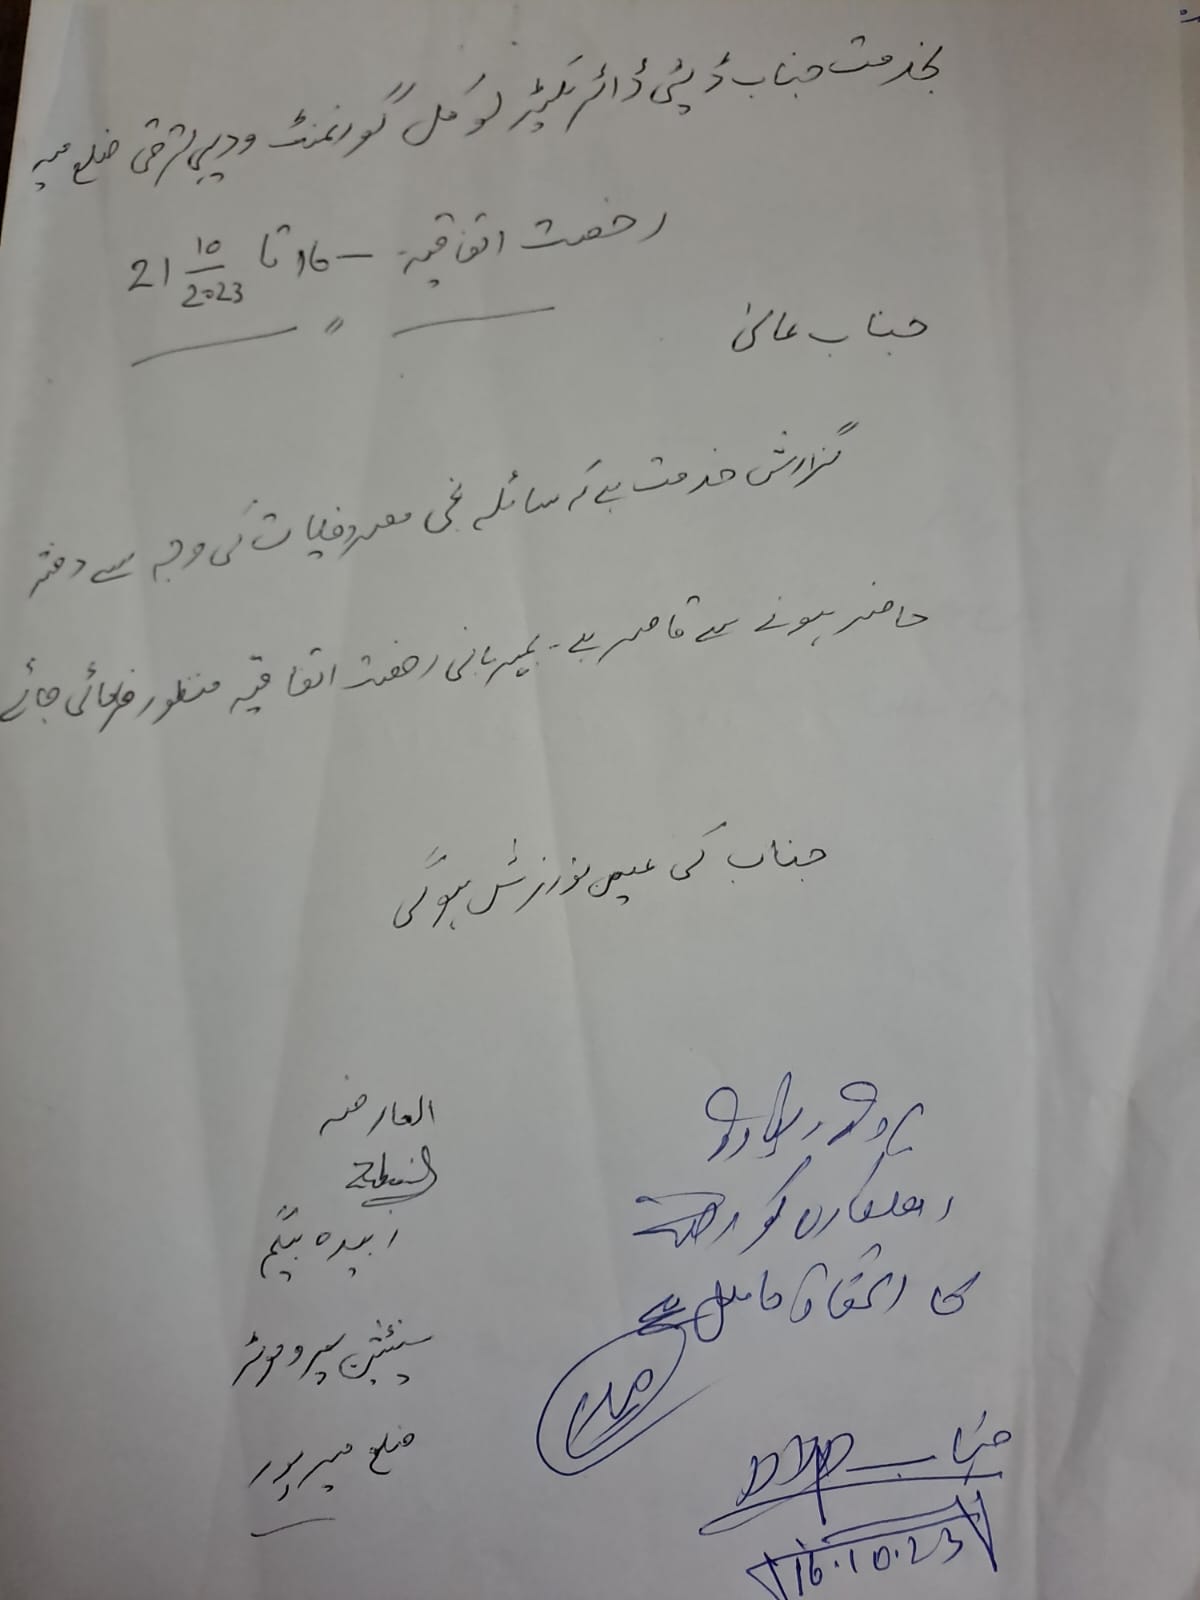 بخدمت جناب ڈپٹی ڈائریکٹر لوکل گورنمنٹ و دیہی ترقی ضلع میر
رخصت اتفاقیہ – 16 تا 21 10/2023
جناب عالی
گزارش خدمت ہے کہ سائلہ نجی مصروفیات کی وجہ سے دفتر
حاضر ہونے سے قاصر ہے۔ بمہربانی رخصت اتفاقیہ منظور فرمائی جائے
جناب کی عین نوازش ہوگی
العارضہ
زبیدہ بیگم
سینیٹیشن پروموٹر
ضلع میرپور
اہلکارہ کو رخصت
کا استحقاق حاصل ہے
جناب
16.10.23